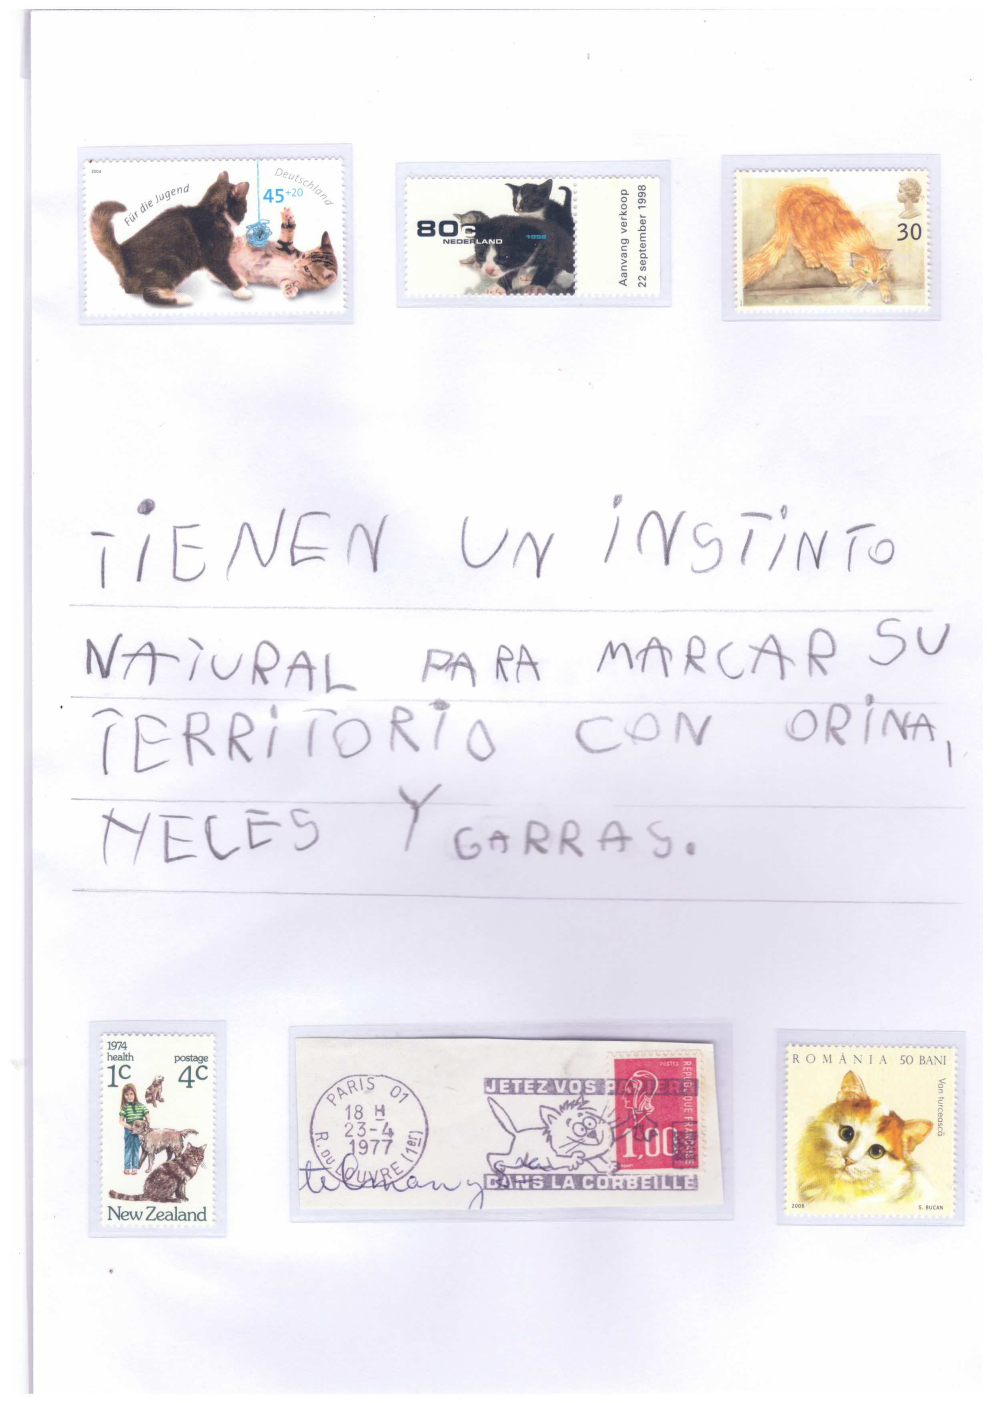 2004
Für die Jugend
Deutschland
45+20
80c
NEDERLAND
1998
Aanvang verkoop
22 september 1998
30
TiENEN UN iNSTiNTO
NATURAL PARA MARCAR SU
TERRiTORiO CON ORiNA,
HECES Y GARRAS.
1974
health postage
1c 4c
New Zealand
PARIS 01
18 H
23-4
1977
R. DU LOUVRE (1er)
JETEZ VOS PAPIERS
DANS LA CORBEILLE
POSTES
REPUBLIQUE FRANÇAISE
1,00
ROMÂNIA 50 BANI
Van turcească
2006 S. BUCAN